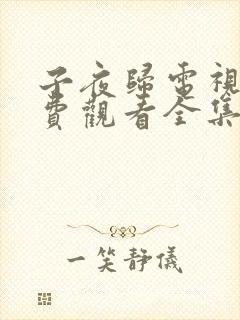 子夜歸電視
費觀看全集
一笑靜儀